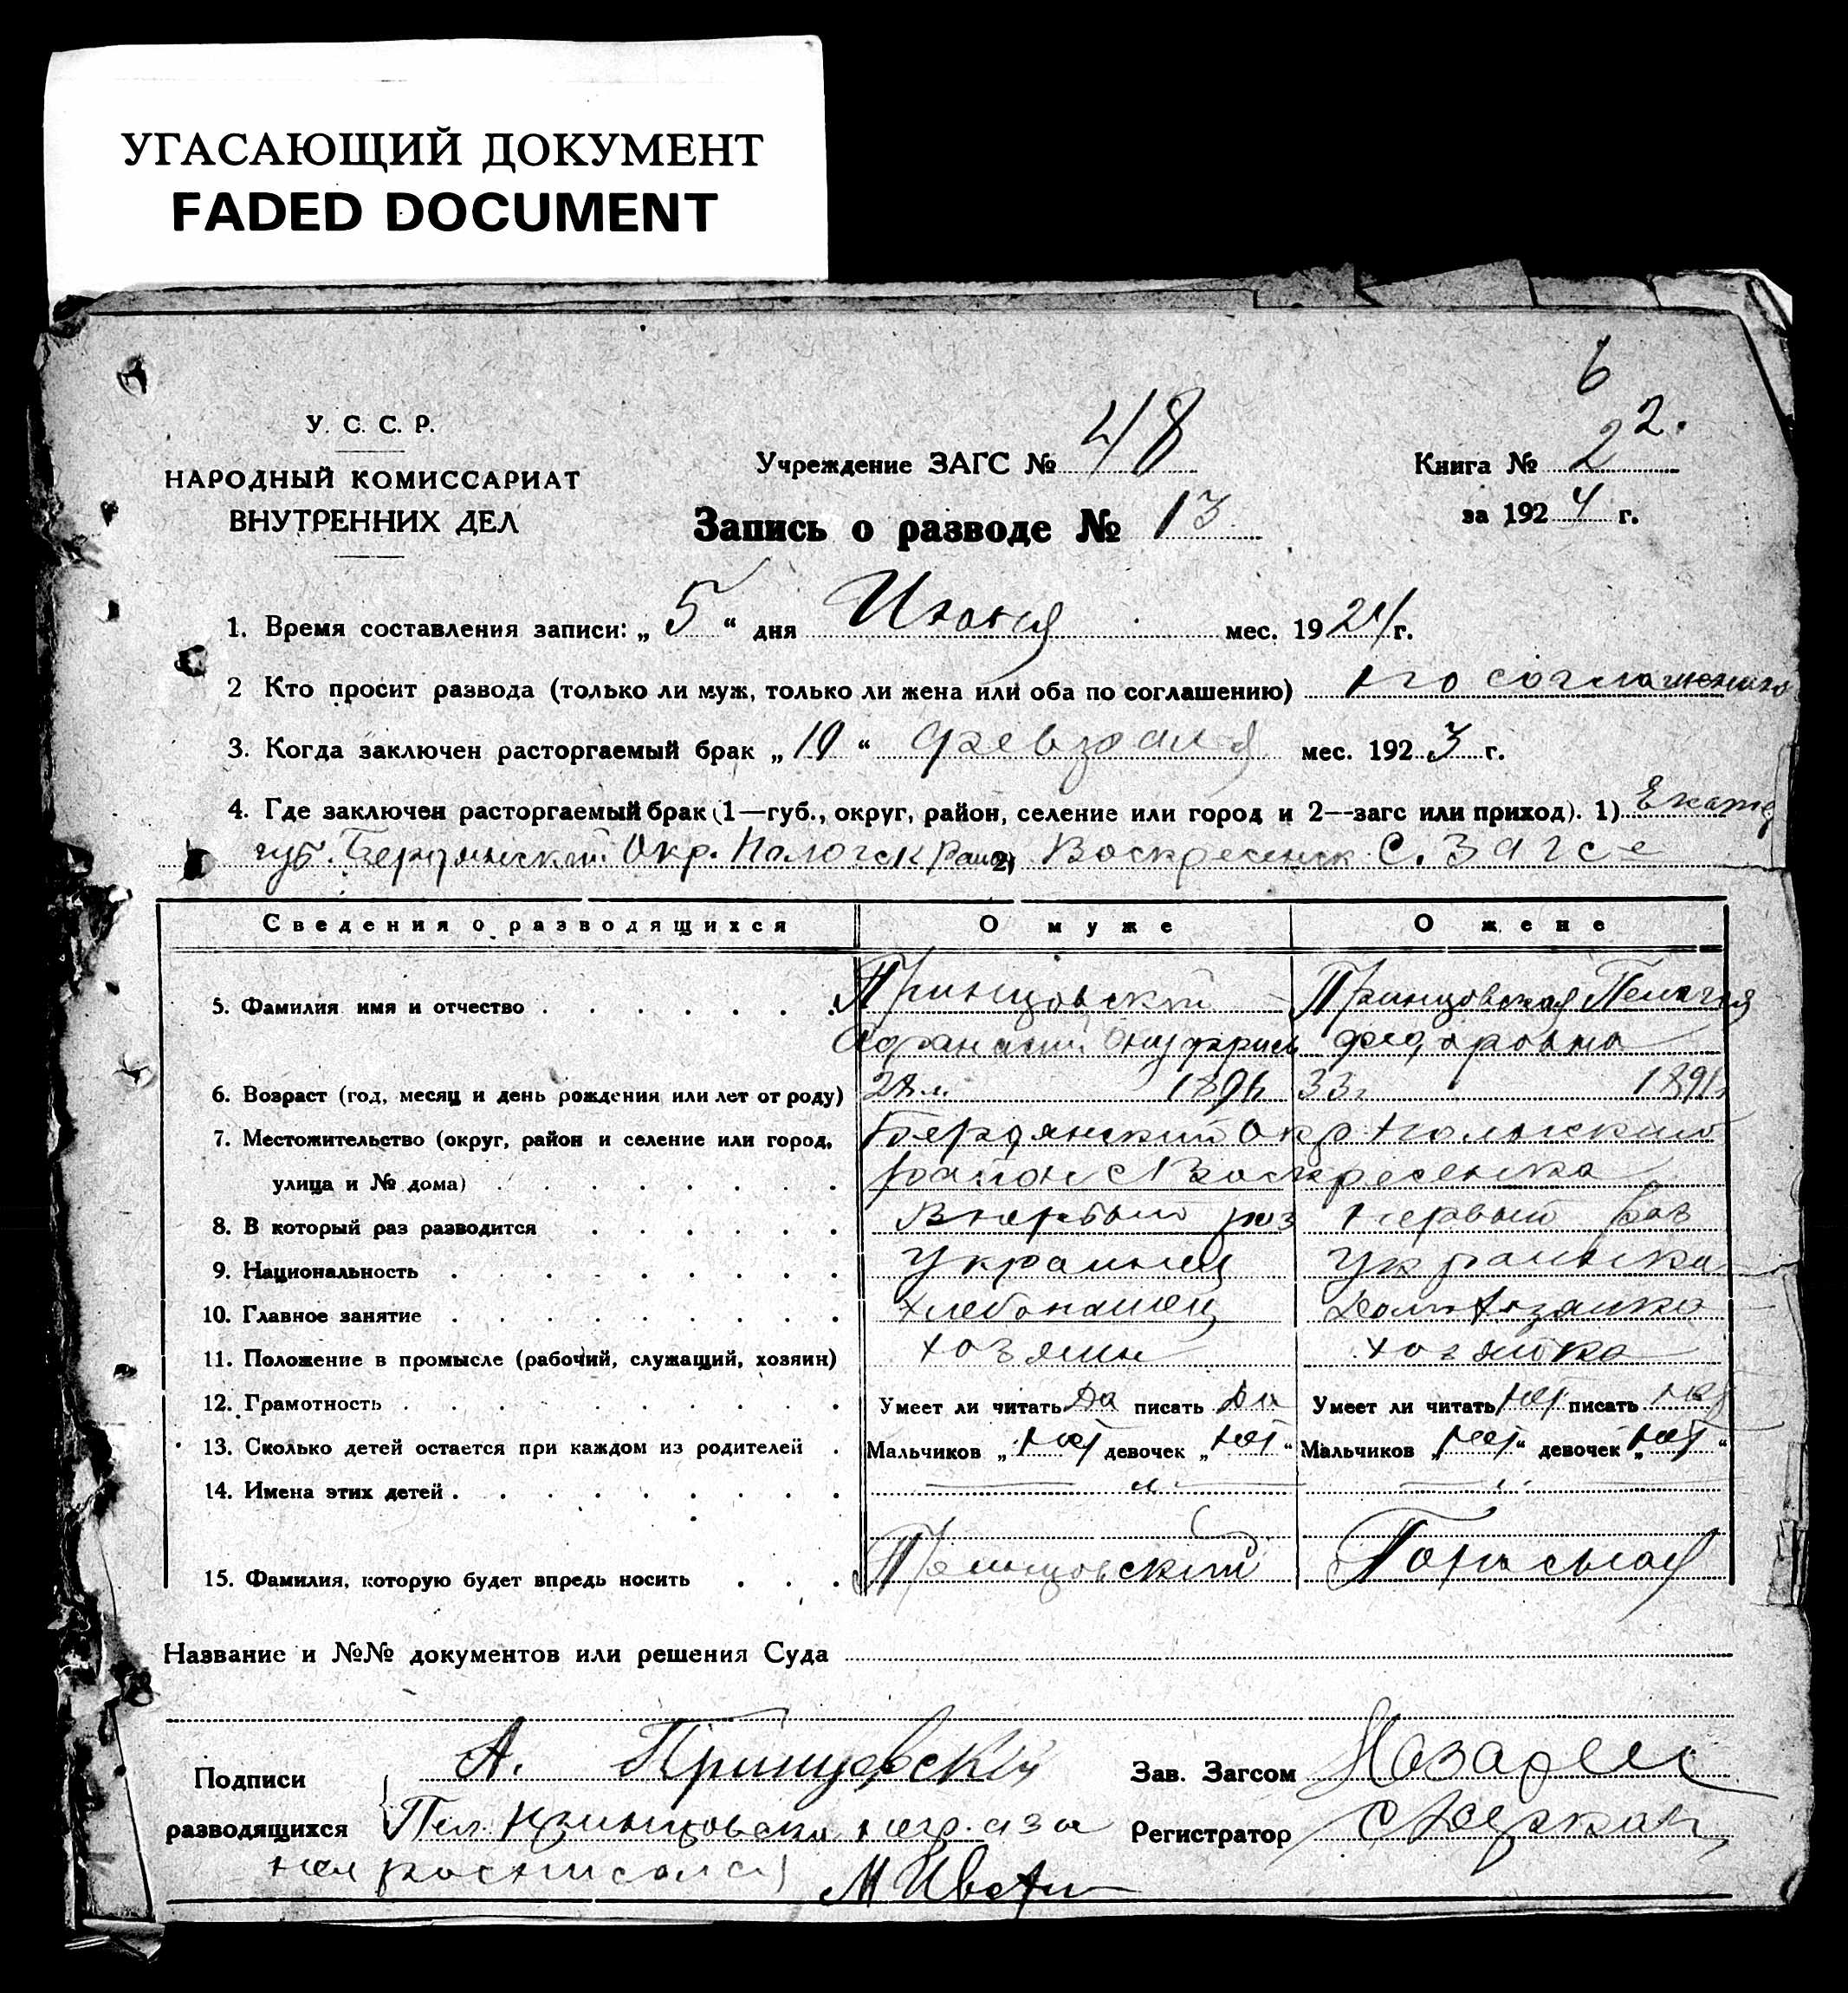 УГАСАЮЩИЙ ДОКУМЕНТ
FADED DOCUMENT
6
У. С. С. Р.
НАРОДНЫЙ КОМИССАРИАТ
ВНУТРЕННИХ ДЕЛ
Учреждение ЗАГС № 48
Книга № 22.
за 1924 г.
Запись о разводе № 13
1. Время составления записи: „5“ дня Июня мес. 1924 г.
2 Кто просит развода (только ли муж, только ли жена или оба по соглашению) по соглашению
3. Когда заключен расторгаемый брак „10“ февраля мес. 1923 г.
4. Где заключен расторгаемый брак (1—губ., округ, район, селение или город и 2—загс или приход). 1) Екате
губ. Бердянский Окр. Пологск район 2) Воскресенск С. Загсе
Сведения о разводящихся О муже О жене
5. Фамилия имя и отчество Принцовский Принцовская Пелагея
Афанасий Федоровна
6. Возраст (год, месяц и день рождения или лет от роду) 28 л. 1896 33 г 1891
7. Местожительство (округ, район и селение или город, Бердянский Окр Пологский
улица и № дома) район с Воскресенка
8. В который раз разводится В первый раз первый раз
9. Национальность Украинец Украинка
10. Главное занятие хлебопашец Домохозяйка
11. Положение в промысле (рабочий, служащий, хозяин) хозяин хозяйка
12. Грамотность Умеет ли читать Да писать Да Умеет ли читать нет писать нет
13. Сколько детей остается при каждом из родителей Мальчиков „нет девочек „нет“ Мальчиков „нет“ девочек „нет“
14. Имена этих детей
15. Фамилия, которую будет впредь носить Принцовский
Название и №№ документов или решения Суда
Подписи А. Принцовский Зав. Загсом
разводящихся Пел. Принцовская неграмо Регистратор
нея росписался